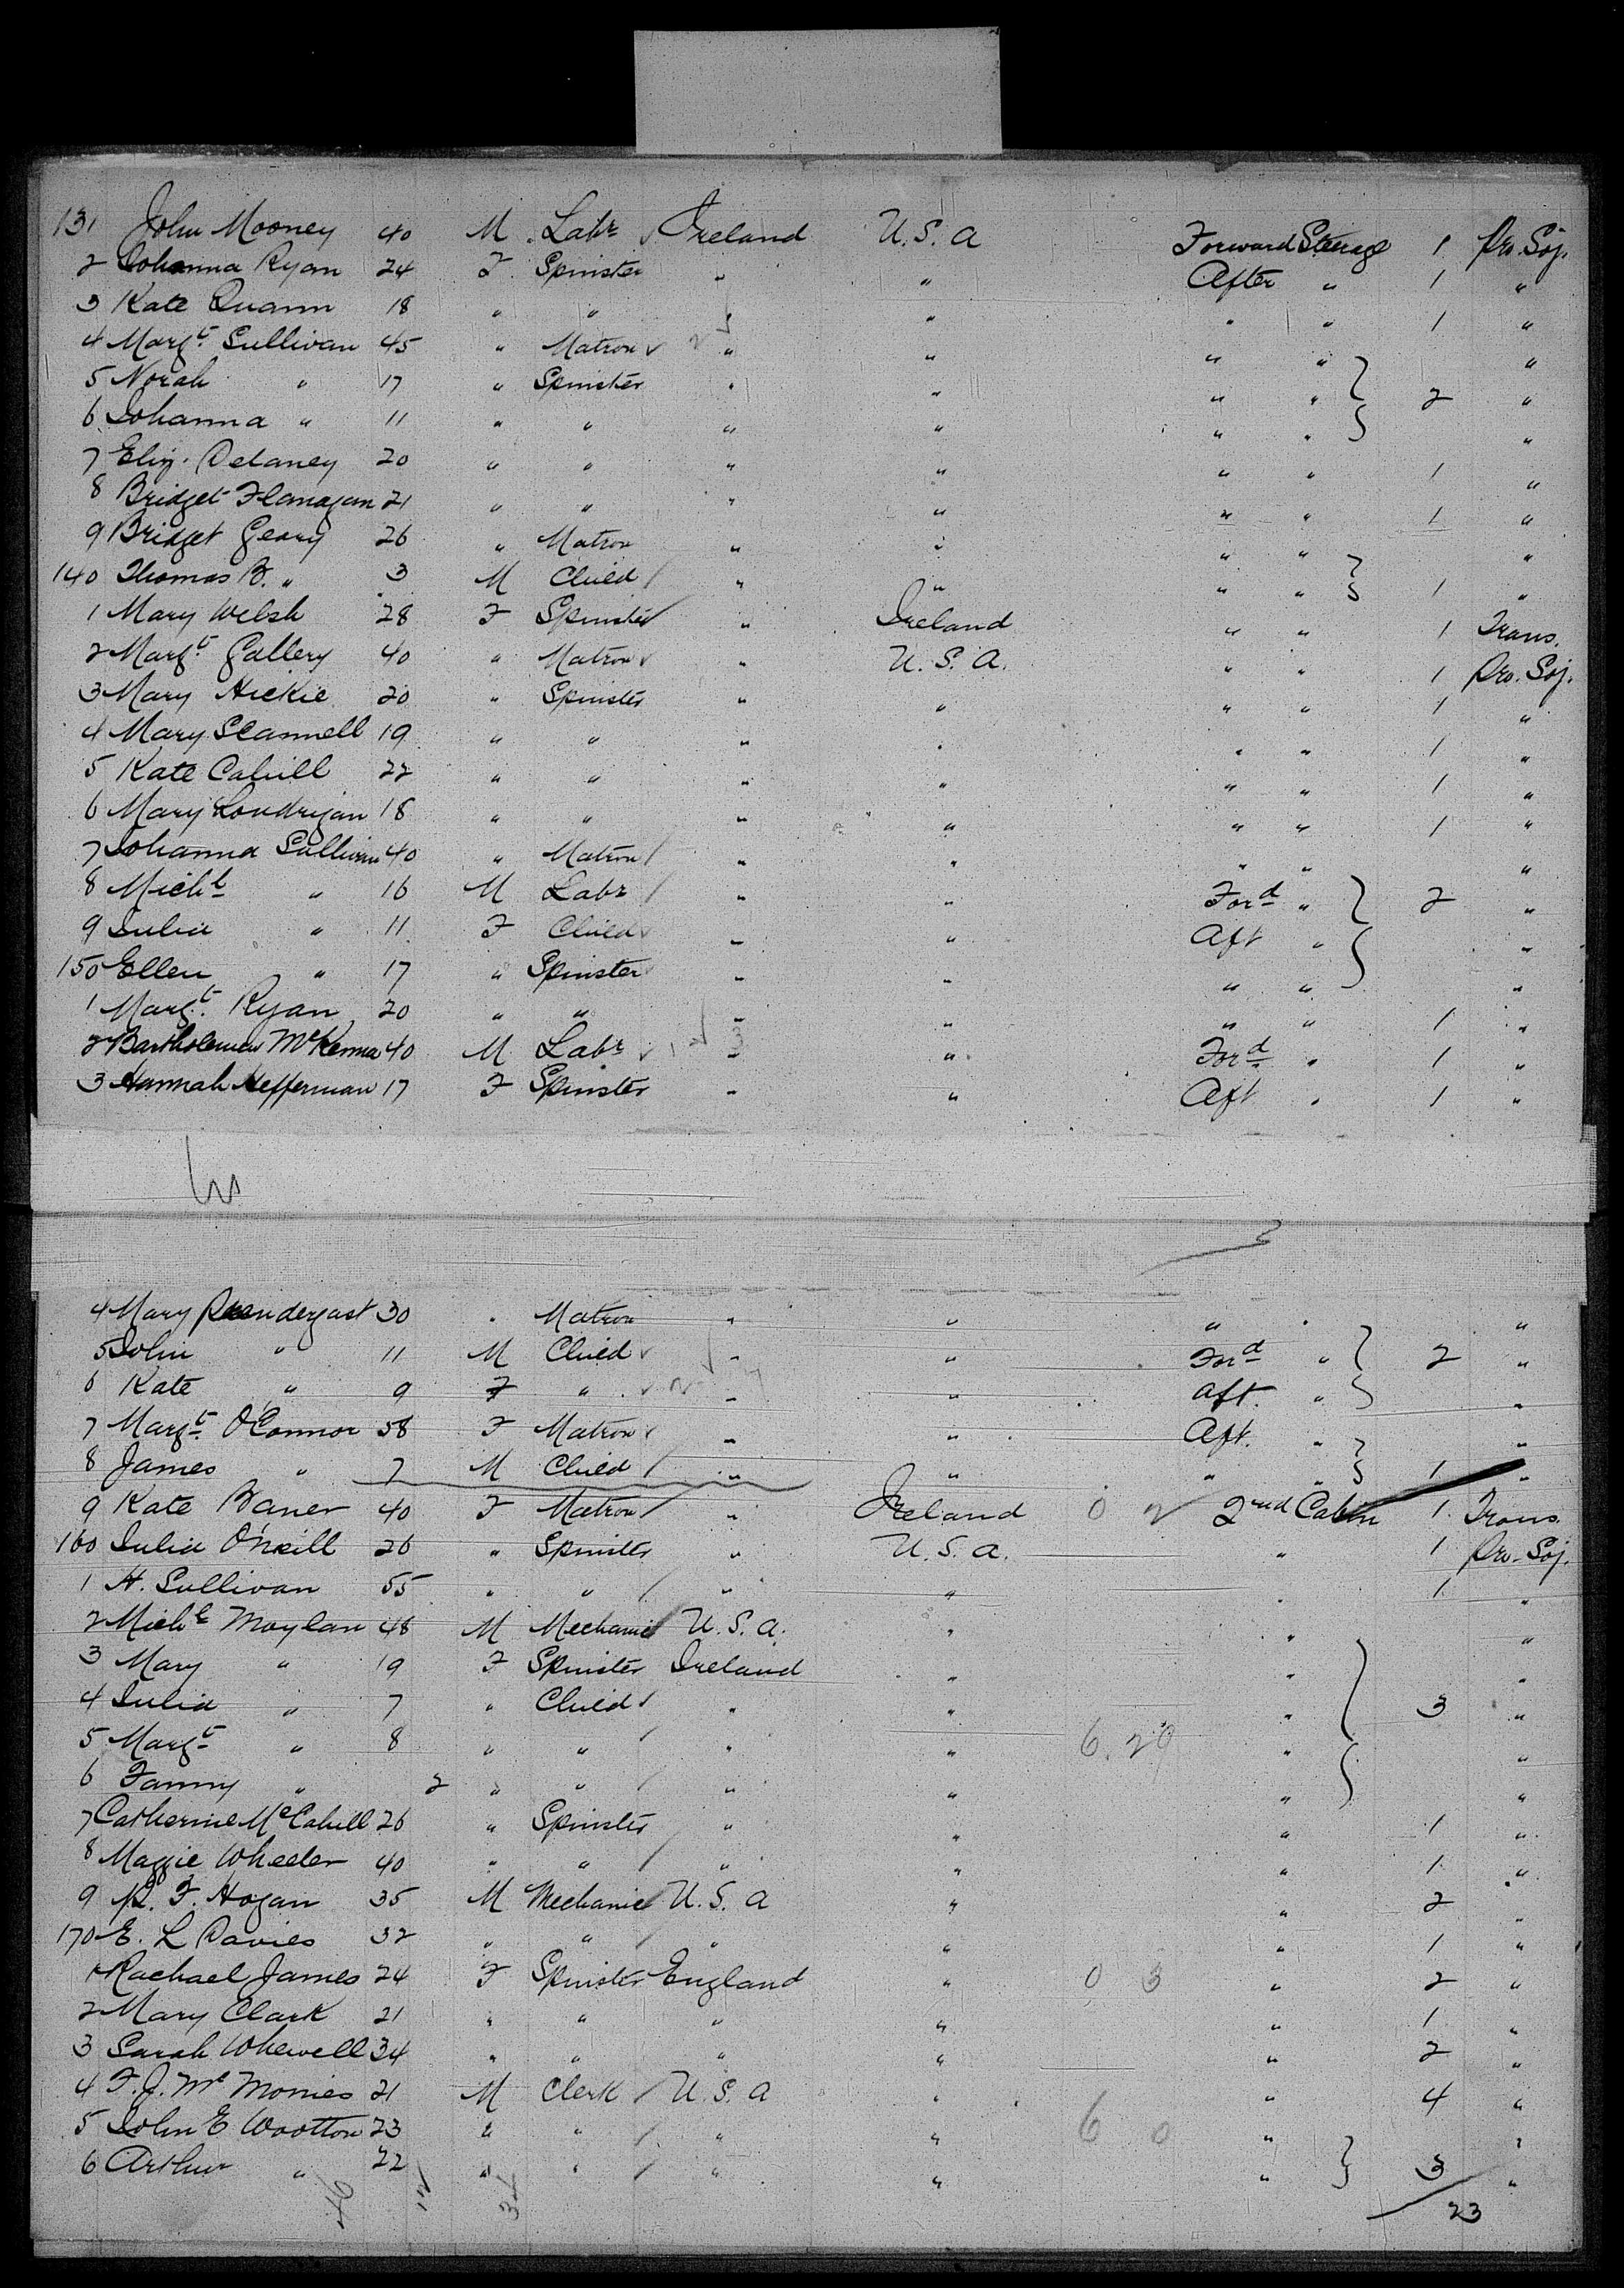 131 John Mooney 40 M Labr Ireland U.S.A Forward Steerage 1 Pro. Soj.
2 Johanna Ryan 24 F Spinster " " After " 1 "
3 Kate Quann 18 " " " " " " 1 "
4 Margt. Sullivan 45 " Matron " " " " "
5 Norah " 17 " Spinster " " " " 2 "
6 Johanna " 11 " " " " " " "
7 Eliz. Delaney 20 " " " " " " 1 "
8 Bridget Flanagan 21 " " " " " " 1 "
9 Bridget Geary 26 " Matron " " " " "
140 Thomas B. " 3 M Child " " " " 1 "
1 Mary Welsh 28 F Spinster " Ireland " " 1 Trans.
2 Margt. Gallery 40 " Matron " U.S.A. " " 1 Pro. Soj.
3 Mary Hickie 20 " Spinster " " " " 1 "
4 Mary Scannell 19 " " " " " " 1 "
5 Kate Cahill 22 " " " " " " 1 "
6 Mary Londrigan 18 " " " " " " 1 "
7 Johanna Sullivan 40 " Matron " " " " "
8 Michl " 16 M Labr " " Ford " 2 "
9 Julia " 11 F Child " " Aft " "
150 Ellen " 17 " Spinster " " " " "
1 Margt. Ryan 20 " " " " " " 1 "
2 Bartholemew McKenna 40 M Labr " " Ford " 1 "
3 Hannah Hefferman 17 F Spinster " " Aft " 1 "
4 Mary Prendergast 30 " Matron " " " " "
5 John " 11 M Child " " Ford " 2 "
6 Kate " 9 F " " " Aft. " "
7 Margt. O'Connor 58 F Matron " " Aft. " "
8 James " 7 M Child " " " " 1 "
9 Kate Baner 40 F Matron " Ireland 0 2 2nd Cabin 1 Trans.
160 Julia O'Neill 26 " Spinster " U.S.A. " 1 Pro. Soj.
1 H. Sullivan 55 " " " " " 1 "
2 Michl Moylan 48 M Mechanic U.S.A. " " "
3 Mary " 19 F Spinster Ireland " " "
4 Julia " 7 " Child " " " 3 "
5 Margt " 8 " " " " 6 20 " "
6 Fanny " 2 " " " " " "
7 Catherine McCahill 26 " Spinster " " " 1 "
8 Maggie Wheeler 40 " " " " " 1 "
9 P. F. Hogan 35 M Mechanic U.S.A " " 2 "
170 E. L Davies 32 " " " " " 1 "
1 Rachael James 24 F Spinster England " 0 3 " 2 "
2 Mary Clark 21 " " " " " 1 "
3 Sarah Whewell 34 " " " " " 2 "
4 F. J. Mc Monies 21 M Clerk U.S.A " " 4 "
5 John E Wootton 23 " " " " 6 0 " "
6 Arthur " 22 " " " " " 3 "
23